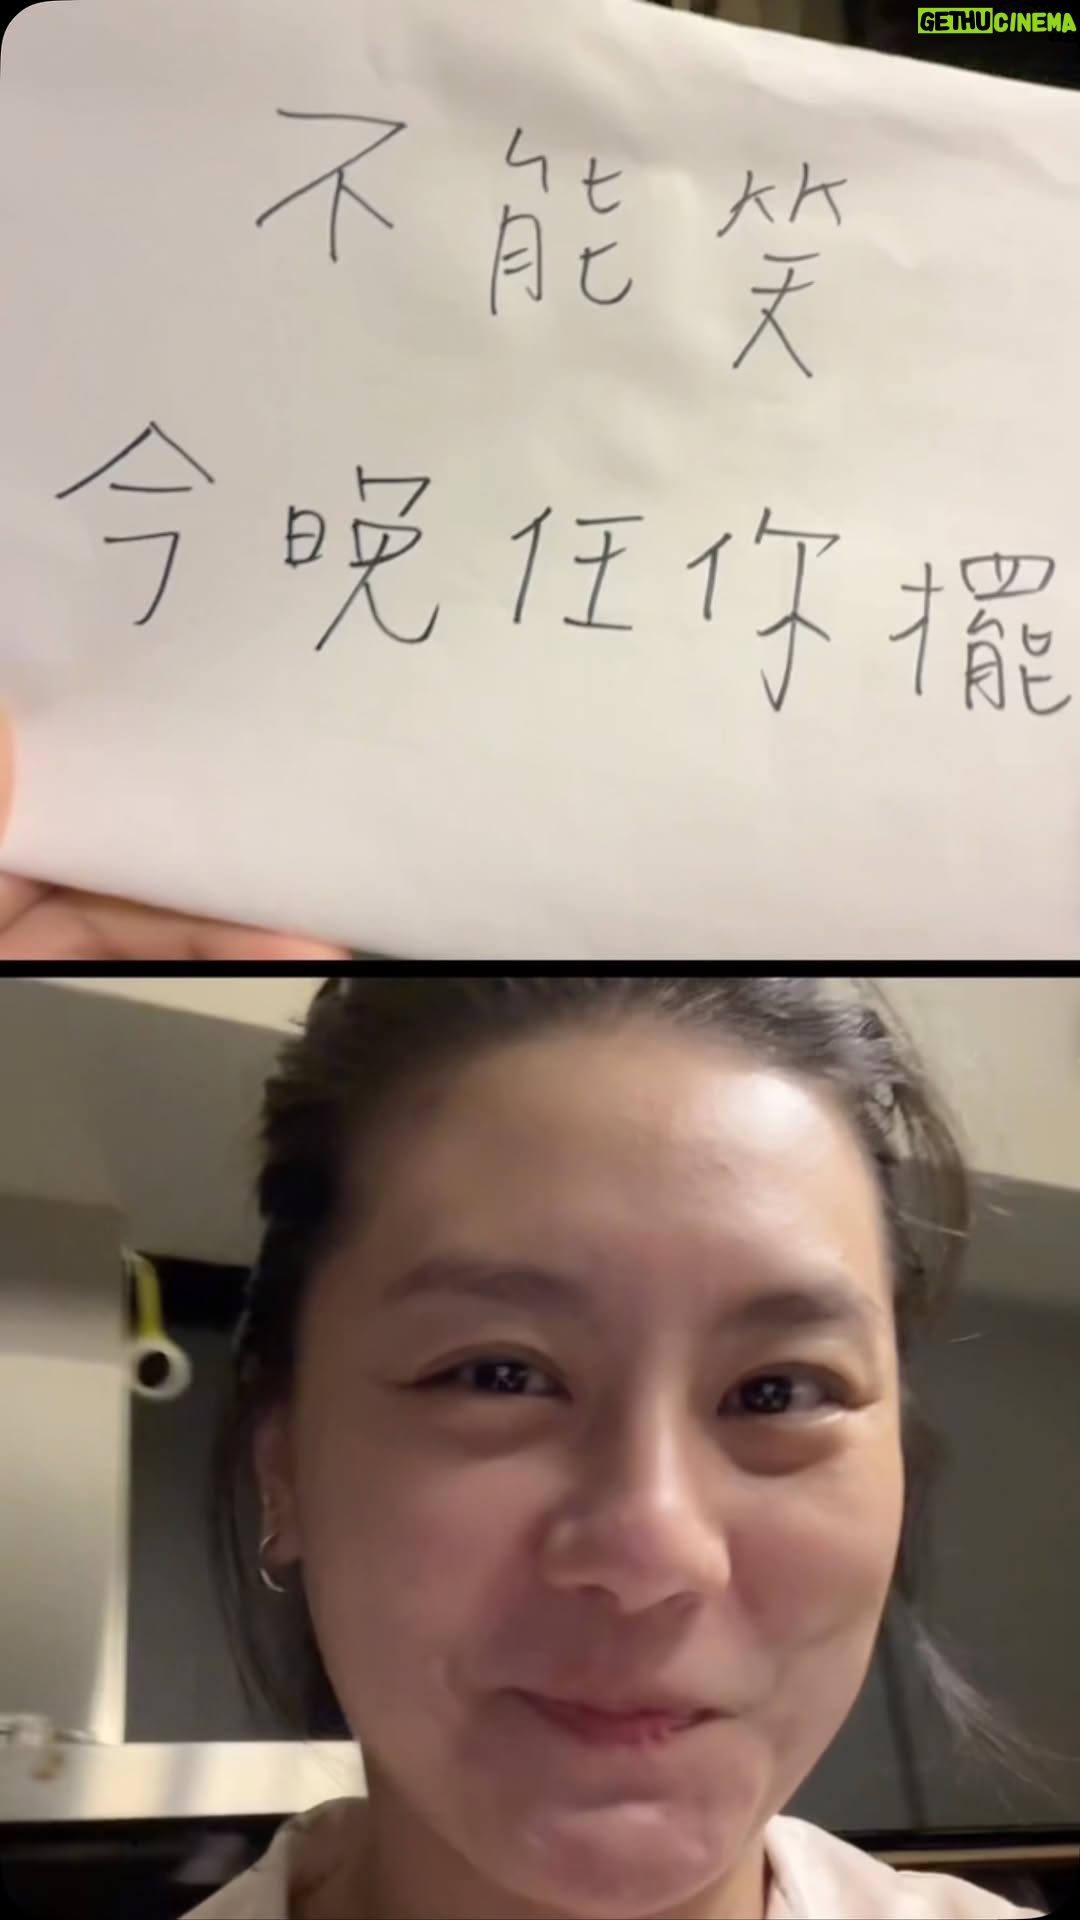 GETHUCINEMA
不能笑
今晚任你擺